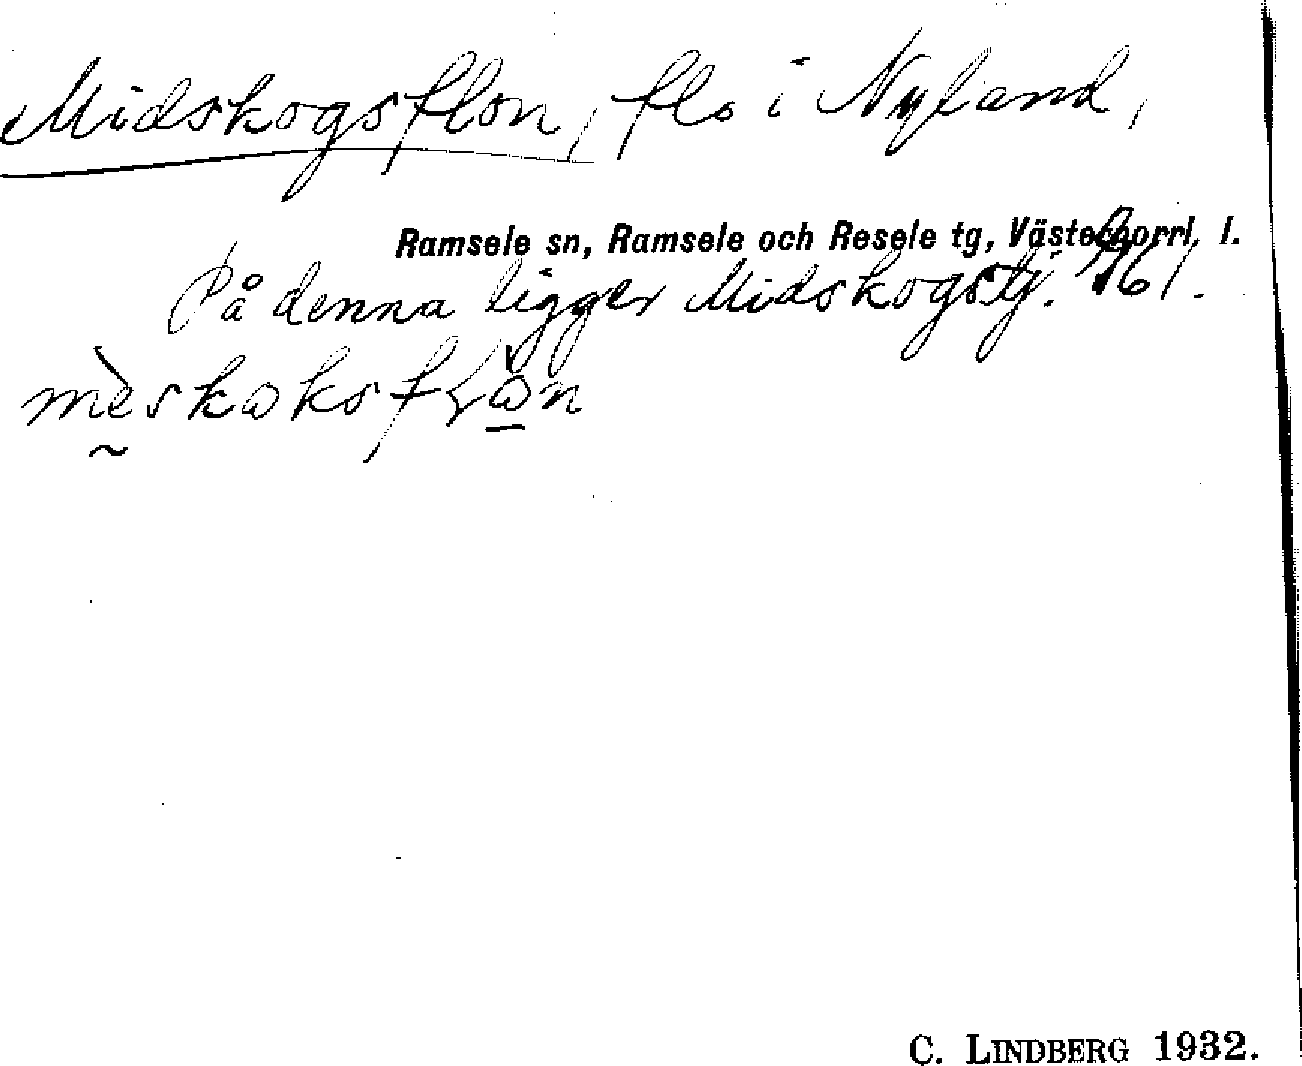 Midskogsflon, flo i Nyland,
Ramsele sn, Ramsele och Resele tg, Västernorrl. l.
På denna ligger Midskogstj. 961.
C. LINDBERG 1932.